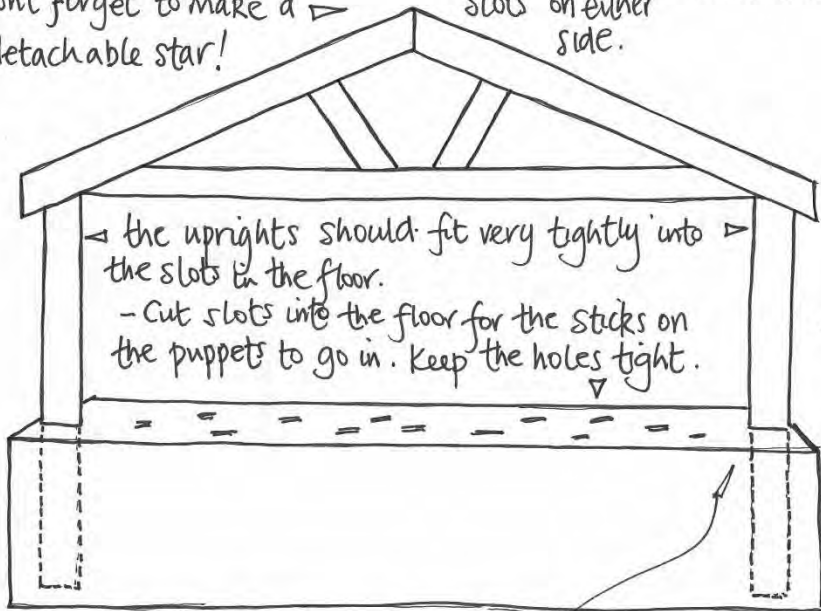 forget to make a
detachable star!
slots on either
side.
the uprights should fit very tightly into
the slots in the floor.
- Cut slots into the floor for the sticks on
the puppets to go in. Keep the holes tight.